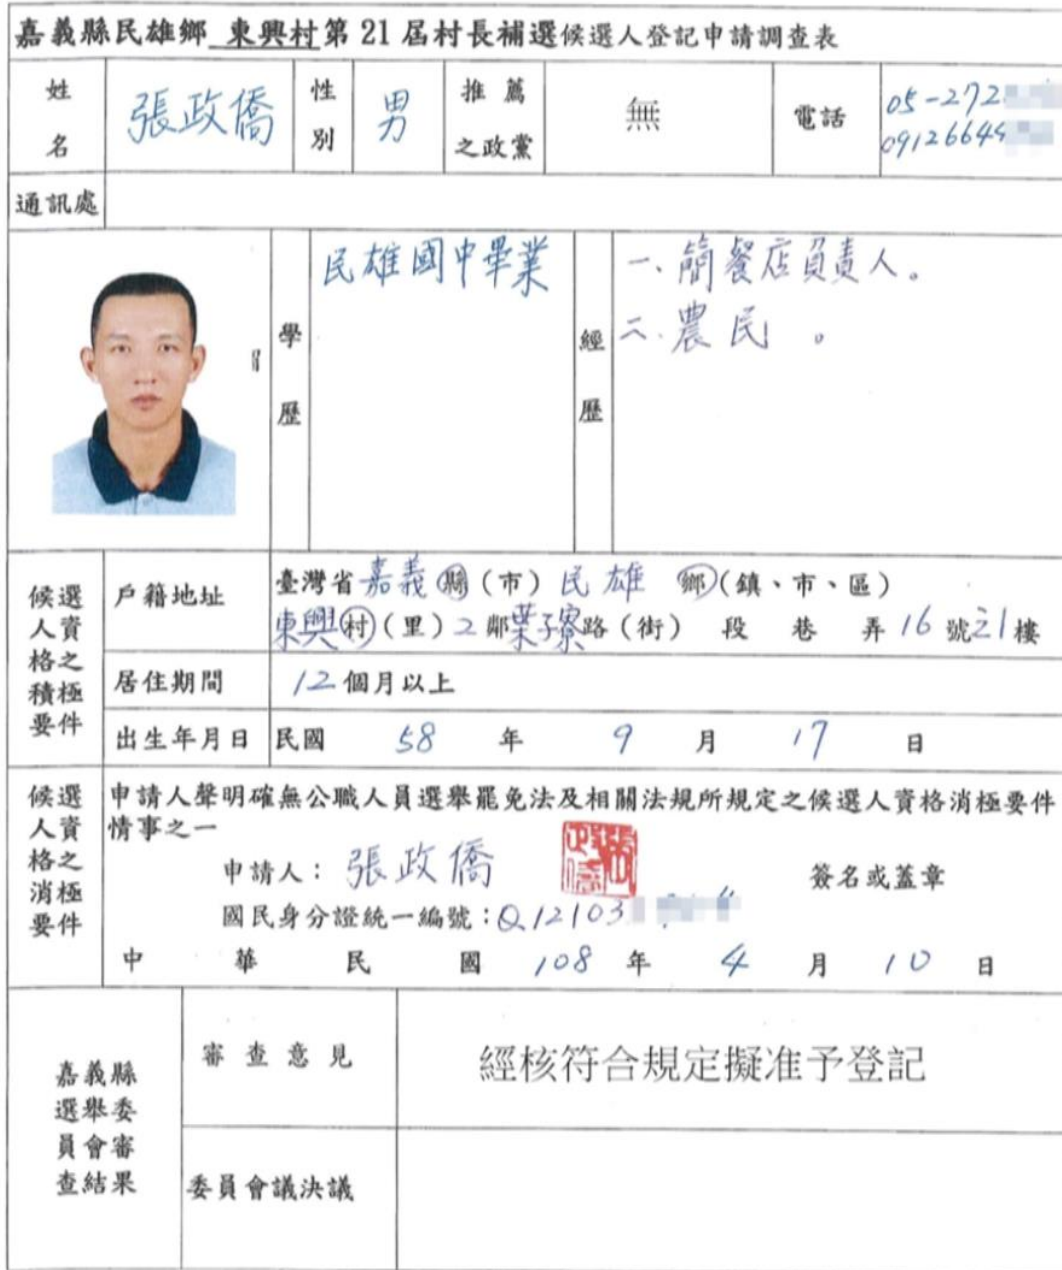 嘉義縣民雄鄉 東興村第 21 屆村長補選候選人登記申請調查表
姓名 張政僑 性別 男 推薦之政黨 無 電話 05-272
0912664
通訊處
學歷 民雄國中畢業
經歷 一、簡餐店負責人。
二、農民。
候選人資格之積極要件
戶籍地址 臺灣省嘉義縣(市)民雄鄉(鎮、市、區)
東興村(里)2鄰葉子寮路(街) 段 巷 弄16號之1樓
居住期間 12個月以上
出生年月日 民國 58 年 9 月 17 日
候選人資格之消極要件
申請人聲明確無公職人員選舉罷免法及相關法規所規定之候選人資格消極要件
情事之一
申請人:張政僑 簽名或蓋章
國民身分證統一編號:Q12103
中華民國 108 年 4 月 10 日
嘉義縣選舉委員會審查結果
審查意見 經核符合規定擬准予登記
委員會議決議